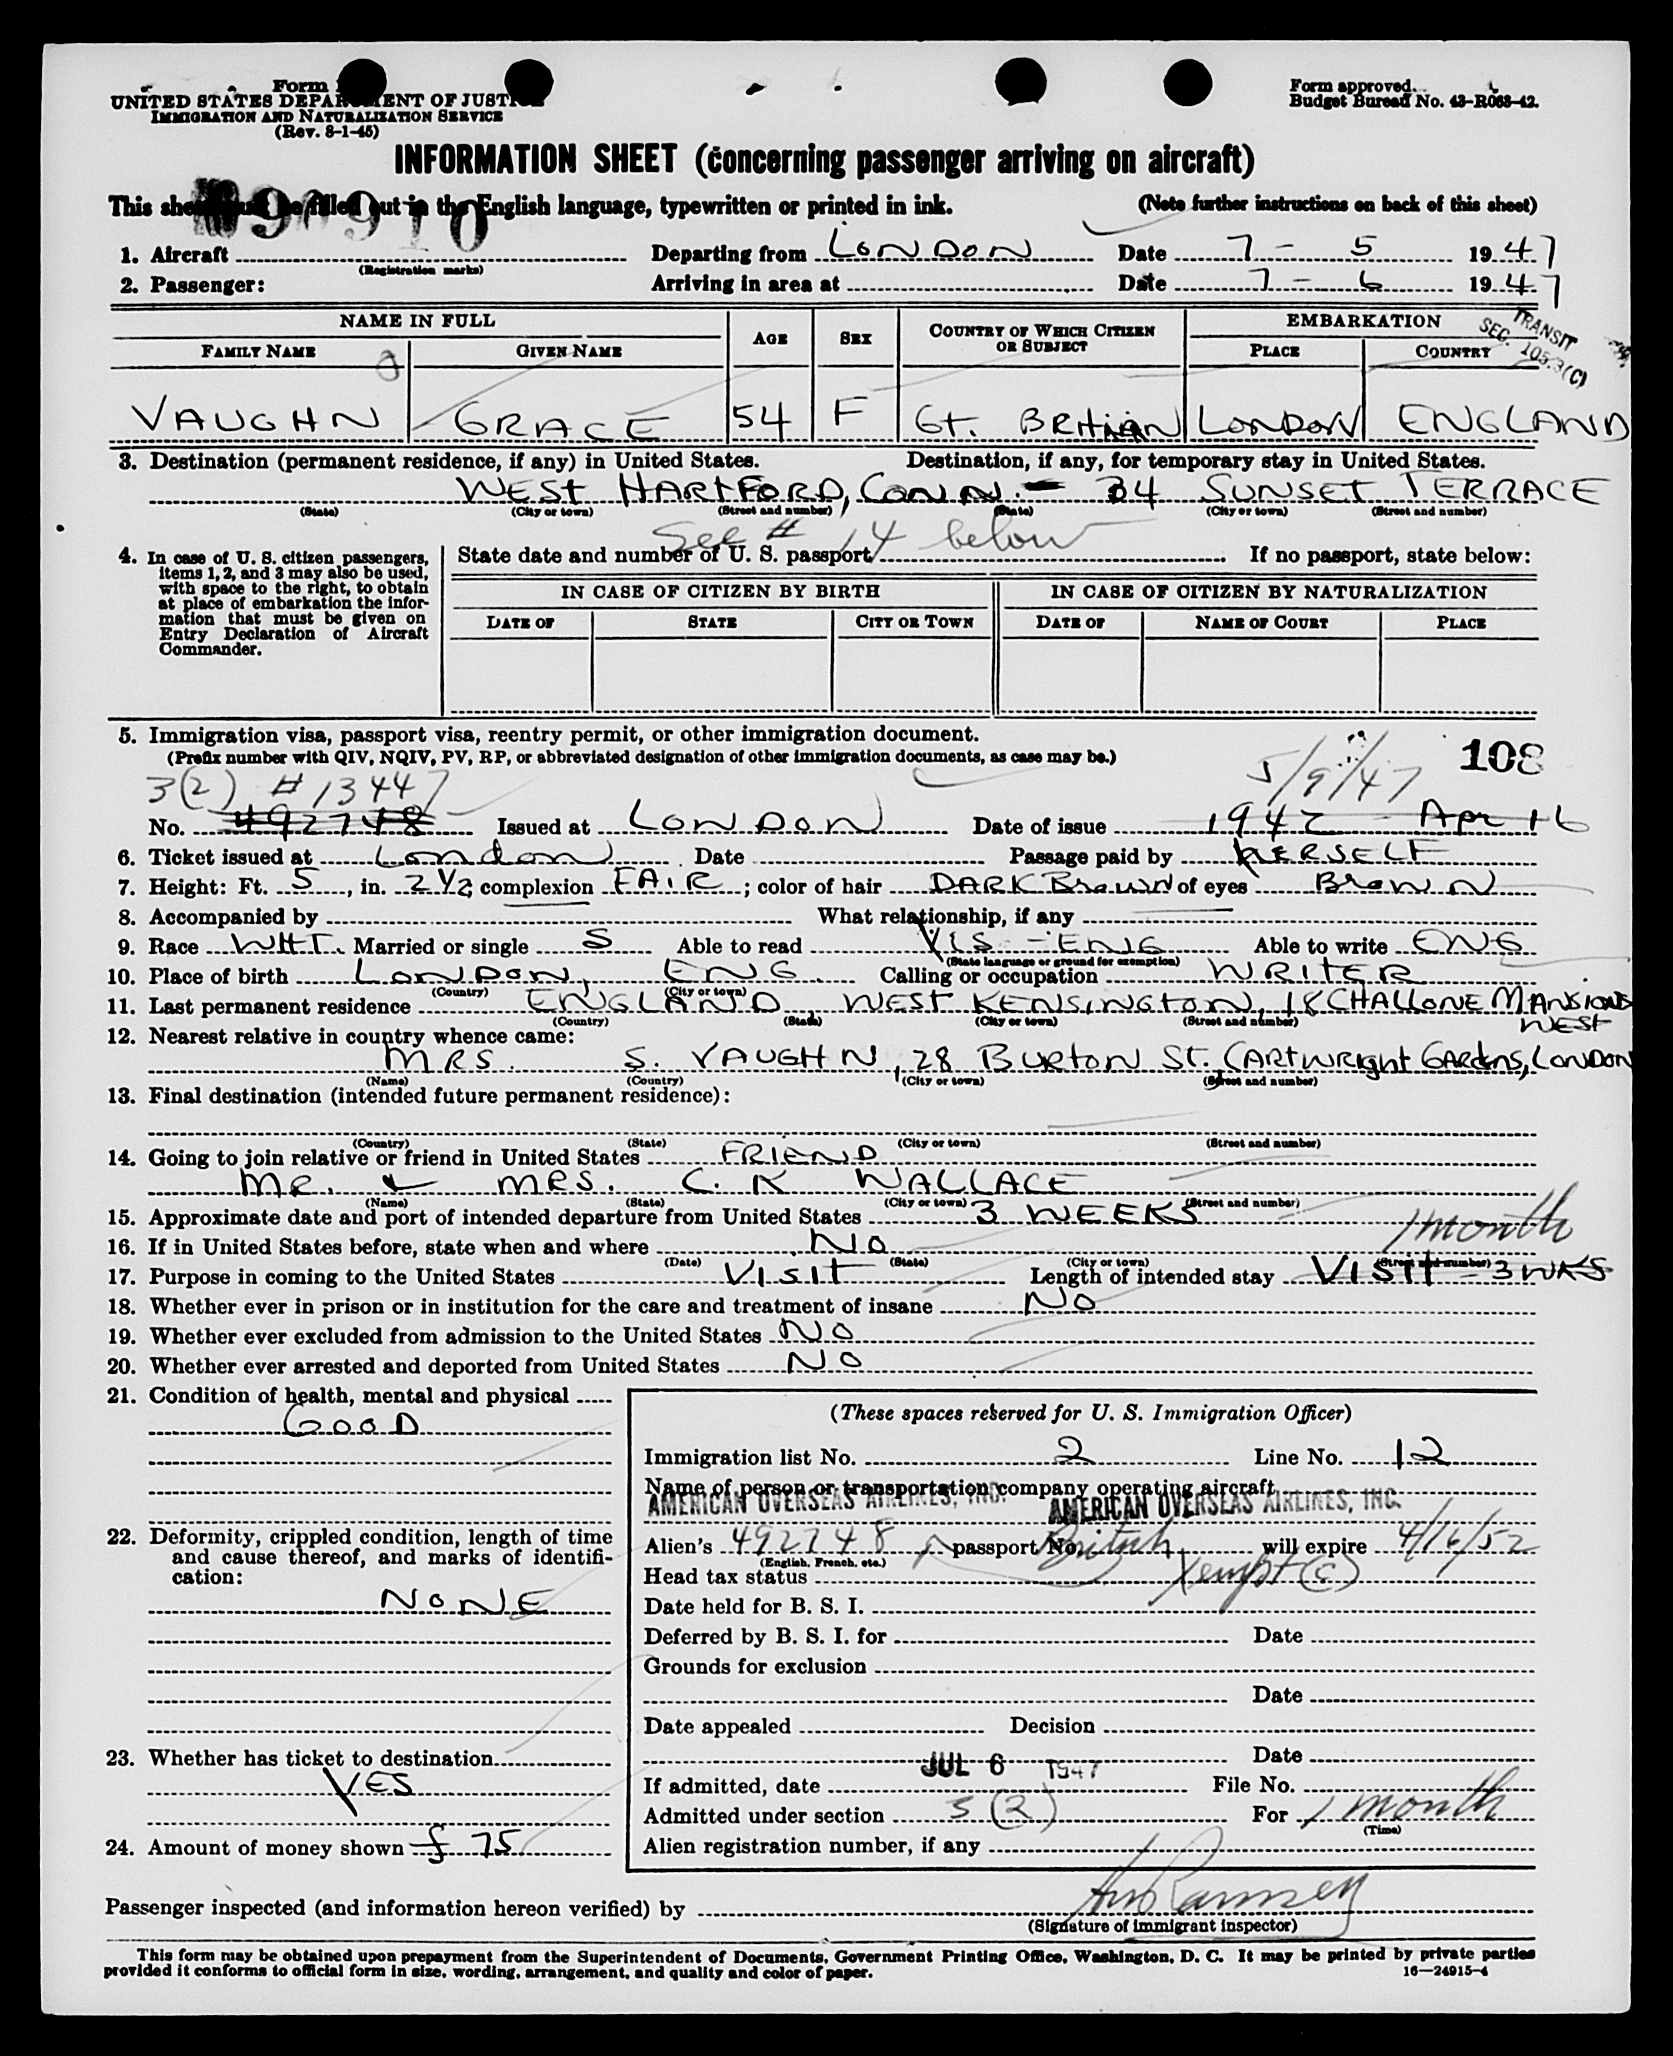 Form
UNITED STATES DEPARTMENT OF JUSTICE
IMMIGRATION AND NATURALIZATION SERVICE
(Rev. 8-1-45)
Form approved.
Budget Bureau No. 43-R063-42.
INFORMATION SHEET (concerning passenger arriving on aircraft)
This sheet must be filled out in the English language, typewritten or printed in ink. (Note further instructions on back of this sheet)
1. Aircraft (Registration marks) Departing from LONDON Date 7 - 5 1947
2. Passenger: Arriving in area at Date 7 - 6 1947
TRANSIT
SEC. 105.3(C)
NAME IN FULL AGE SEX COUNTRY OF WHICH CITIZEN OR SUBJECT EMBARKATION
FAMILY NAME GIVEN NAME PLACE COUNTRY
VAUGHN GRACE 54 F Gt. BRITIAN LONDON ENGLAND
3. Destination (permanent residence, if any) in United States. Destination, if any, for temporary stay in United States.
WEST HARTFORD, CONN. - 34 SUNSET TERRACE
(State) (City or town) (Street and number) (State) (City or town) (Street and number)
See # 14 below
4. In case of U. S. citizen passengers, items 1, 2, and 3 may also be used, with space to the right, to obtain at place of embarkation the information that must be given on Entry Declaration of Aircraft Commander.
State date and number of U. S. passport If no passport, state below:
IN CASE OF CITIZEN BY BIRTH IN CASE OF CITIZEN BY NATURALIZATION
DATE OF STATE CITY OR TOWN DATE OF NAME OF COURT PLACE
5. Immigration visa, passport visa, reentry permit, or other immigration document.
(Prefix number with QIV, NQIV, PV, RP, or abbreviated designation of other immigration documents, as case may be.)
108
3(2) # 13447 5/9/47
No. 492748 Issued at LONDON Date of issue 1947 Apr 16
6. Ticket issued at London Date Passage paid by HERSELF
7. Height: Ft. 5, in. 2 1/2; complexion FAIR; color of hair DARK Brown of eyes Brown
8. Accompanied by What relationship, if any
9. Race WHT. Married or single S Able to read YIS - ENG Able to write ENG
(State language or ground for exemption)
10. Place of birth LONDON, ENG. Calling or occupation WRITER
(Country) (City or town)
11. Last permanent residence ENGLAND, WEST KENSINGTON, 18 CHALLONE MANSIONS
(Country) (State) (City or town) (Street and number) WEST
12. Nearest relative in country whence came:
MRS. S. VAUGHN, 28 BURTON St. CARTWRIGHT GARDENS, LONDON
(Name) (Country) (City or town) (Street and number)
13. Final destination (intended future permanent residence):
(Country) (State) (City or town) (Street and number)
14. Going to join relative or friend in United States FRIEND
MR. & MRS. C. K WALLACE
(Name) (State) (City or town) (Street and number)
15. Approximate date and port of intended departure from United States 3 WEEKS 1 month
16. If in United States before, state when and where NO
(Date) (State) (City or town) (Street and number)
17. Purpose in coming to the United States VISIT Length of intended stay VISIT - 3 WKS
18. Whether ever in prison or in institution for the care and treatment of insane NO
19. Whether ever excluded from admission to the United States NO
20. Whether ever arrested and deported from United States NO
21. Condition of health, mental and physical
GOOD
22. Deformity, crippled condition, length of time and cause thereof, and marks of identification:
NONE
23. Whether has ticket to destination
YES
24. Amount of money shown £ 75
(These spaces reserved for U. S. Immigration Officer)
Immigration list No. 2 Line No. 12
Name of person or transportation company operating aircraft
AMERICAN OVERSEAS AIRLINES, INC. AMERICAN OVERSEAS AIRLINES, INC.
Alien's 492748 passport No. British will expire 4/16/52
(English, French, etc.)
Head tax status Xempt (c)
Date held for B. S. I.
Deferred by B. S. I. for Date
Grounds for exclusion
Date
Date appealed Decision
Date
If admitted, date JUL 6 1947 File No.
Admitted under section 3(2) For 1 month
(Time)
Alien registration number, if any
Passenger inspected (and information hereon verified) by
(Signature of immigrant inspector)
This form may be obtained upon prepayment from the Superintendent of Documents, Government Printing Office, Washington, D. C. It may be printed by private parties
provided it conforms to official form in size, wording, arrangement, and quality and color of paper. 16—24915-4